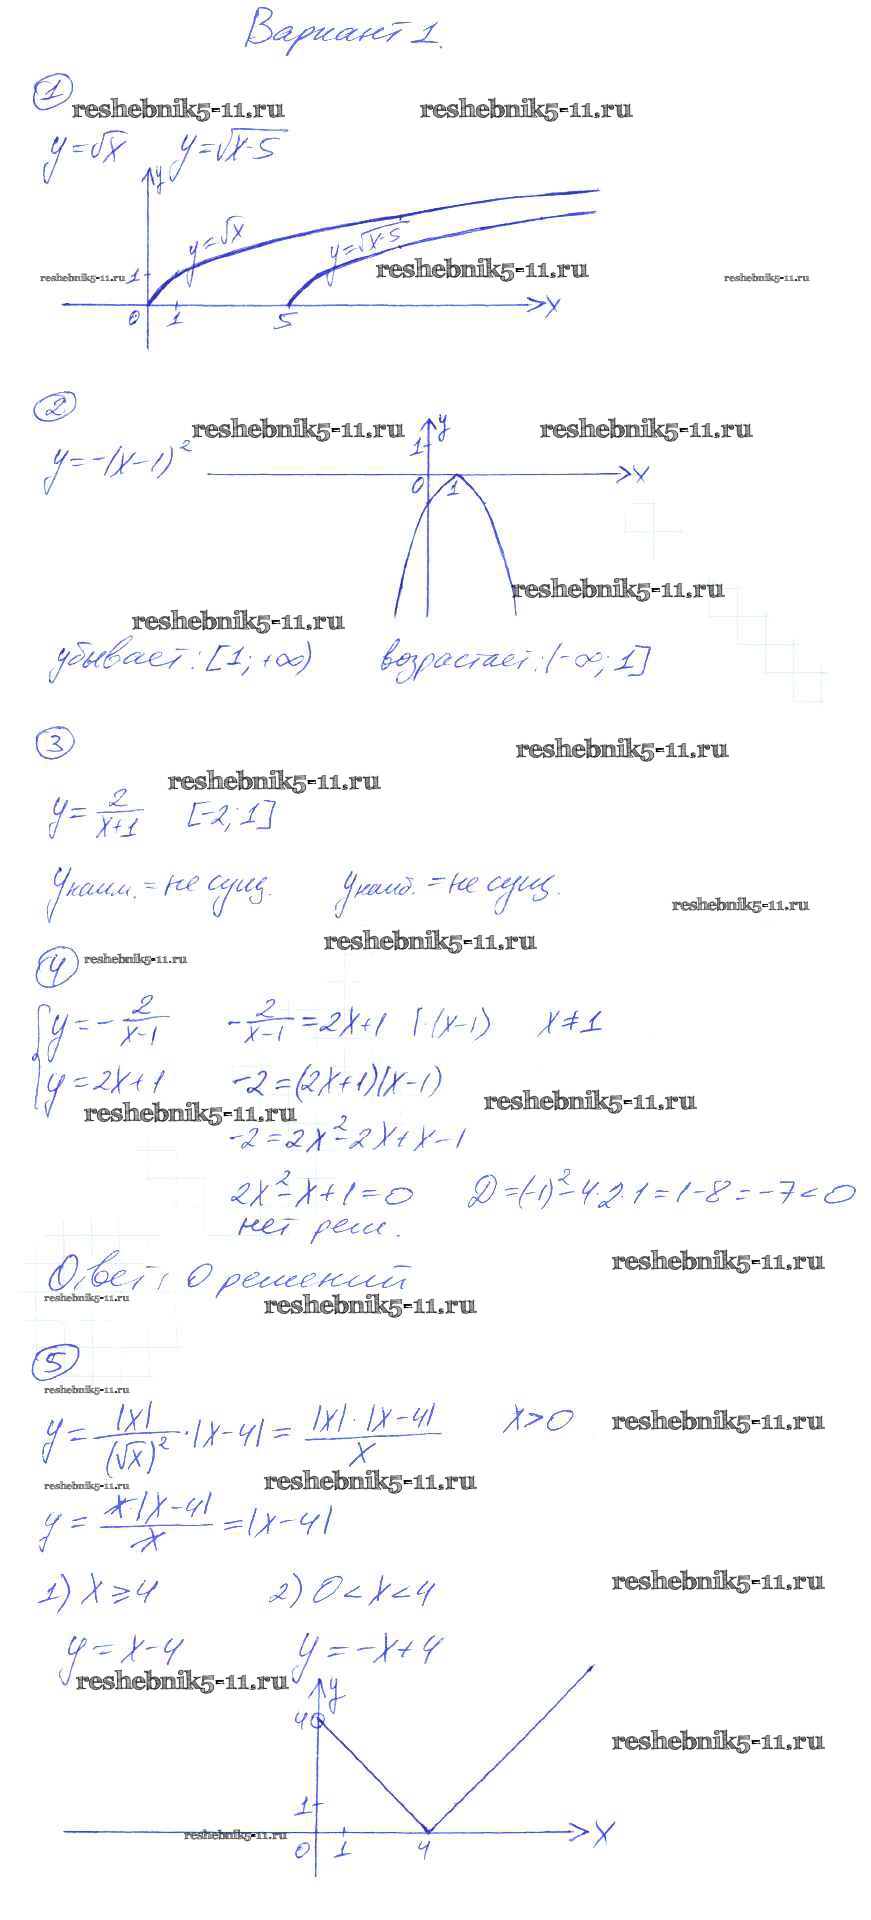 Вариант 1.
1
reshebnik5-11.ru reshebnik5-11.ru
y=√x y=√x-5
y
y=√x y=√x-5
reshebnik5-11.ru 1 reshebnik5-11.ru reshebnik5-11.ru
0 1 5 x
2
reshebnik5-11.ru y reshebnik5-11.ru
y=-(x-1)² 1
0 1 x
reshebnik5-11.ru
reshebnik5-11.ru
убывает: [1; +∞) возрастает: (-∞; 1]
3
reshebnik5-11.ru
reshebnik5-11.ru
y= 2/(x+1) [-2; 1]
yнаим. = не сущ. yнаиб. = не сущ.
reshebnik5-11.ru
reshebnik5-11.ru
4 reshebnik5-11.ru
{ y=- 2/(x-1) - 2/(x-1) =2x+1 |·(x-1) x≠1
y=2x+1 -2=(2x+1)(x-1)
reshebnik5-11.ru reshebnik5-11.ru
-2=2x²-2x+x-1
2x²-x+1=0 D=(-1)²-4·2·1=1-8=-7<0
нет реш.
reshebnik5-11.ru
Ответ: 0 решений
reshebnik5-11.ru reshebnik5-11.ru
5
reshebnik5-11.ru
y= |x|/(√x)² ·|x-4|= |x|·|x-4|/x x>0 reshebnik5-11.ru
reshebnik5-11.ru reshebnik5-11.ru
y= x·|x-4|/x =|x-4|
1) x≥4 2) 0<x<4 reshebnik5-11.ru
y=x-4 y=-x+4
reshebnik5-11.ru y
4
reshebnik5-11.ru
1
reshebnik5-11.ru
0 1 4 x